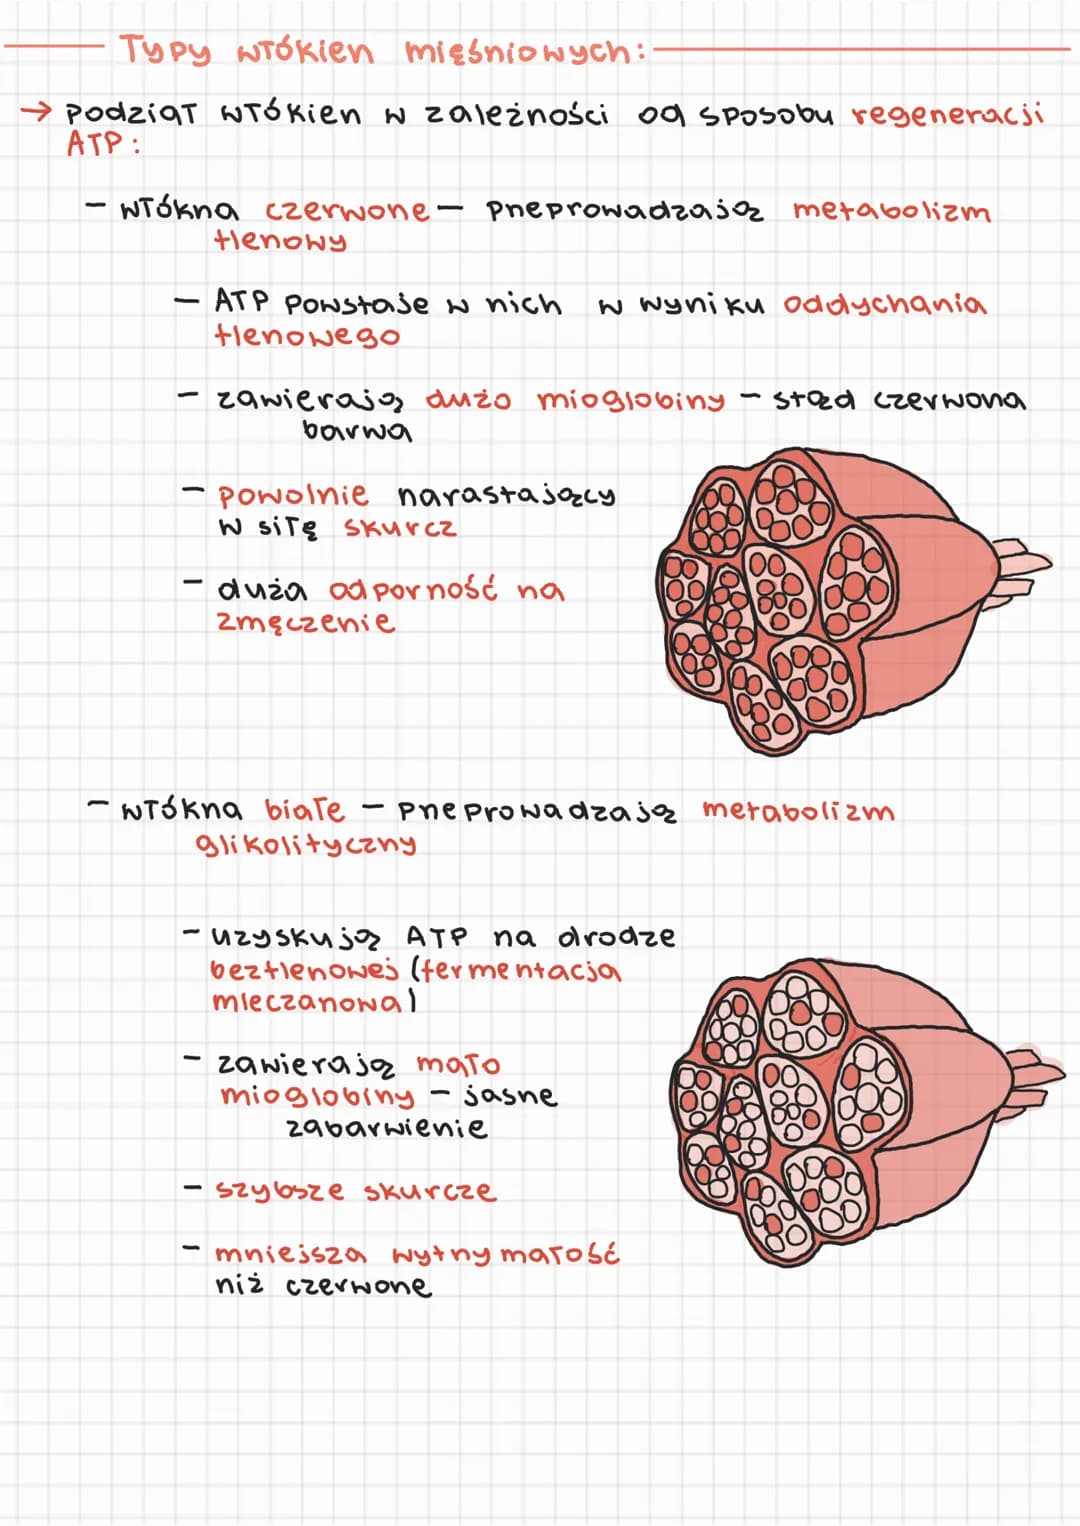 Typy włókien mięśniowych:
→ Podział włókien w zależności od sposobu regeneracji
ATP:
- włókna czerwone - pneprowadzają metabolizm
tlenowy
- ATP powstaje w nich w wyniku oddychania
tlenowego
- zawierają dużo mioglobiny - stąd czerwona
barwa
- powolnie narastający
w siłę skurcz
- duża odporność na
zmęczenie
- włókna białe - pneprowadzają metabolizm
glikolityczny
- uzyskują ATP na drodze
beztlenowej (fermentacja
mleczanowa)
- zawierają mało
mioglobiny - jasne
zabarwienie
- szybsze skurcze
- mniejsza wytnymałość
niż czerwone